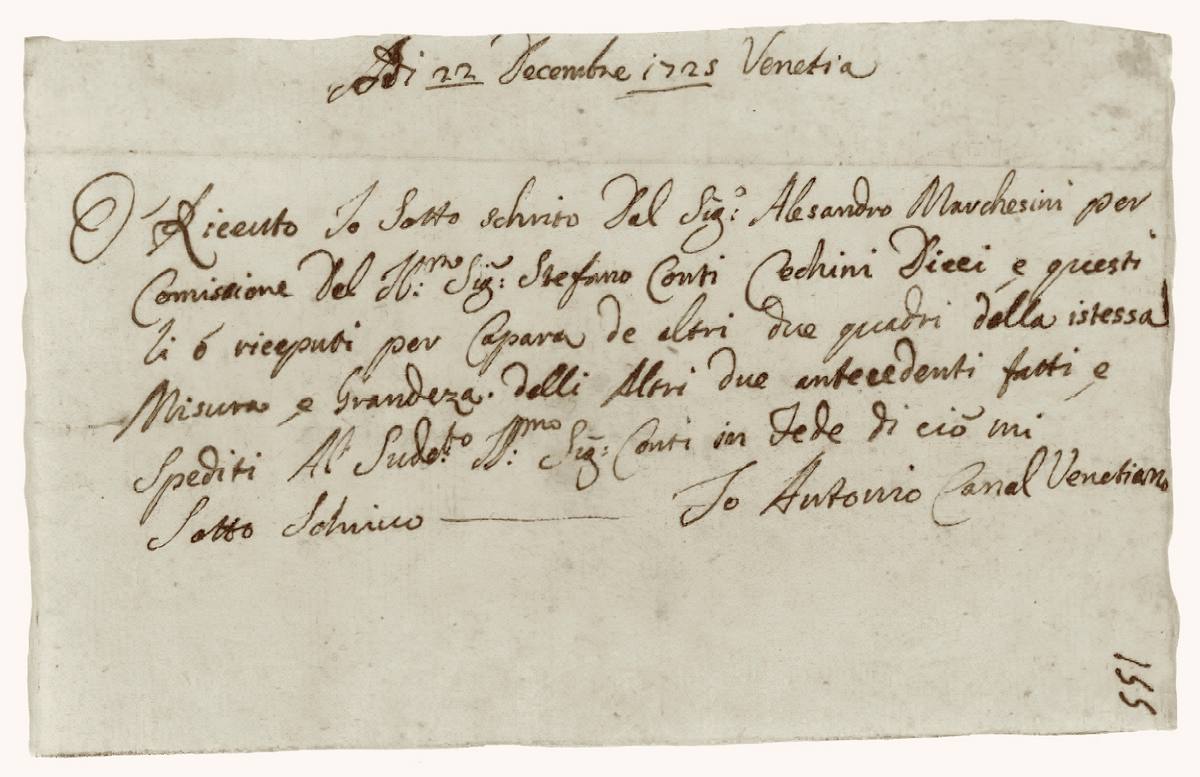 Adi 22 Decembre 1725 Venetia
O Riceuto Io Sotto schrito Dal Sig.r Alesandro Marchesini per
Comissione Del Ill:mo Sig: Stefano Conti Cechini Dieci e questi
li ó riceputi per Capara de altri due quadri della istessa
Misura e Grandeza. delli Altri due antecedenti fatti e
Spediti Al Sudeto Ill:mo Sig: Conti in Fede di ciò mi
Sotto Schrivo — Io Antonio Canal Venetiano
155